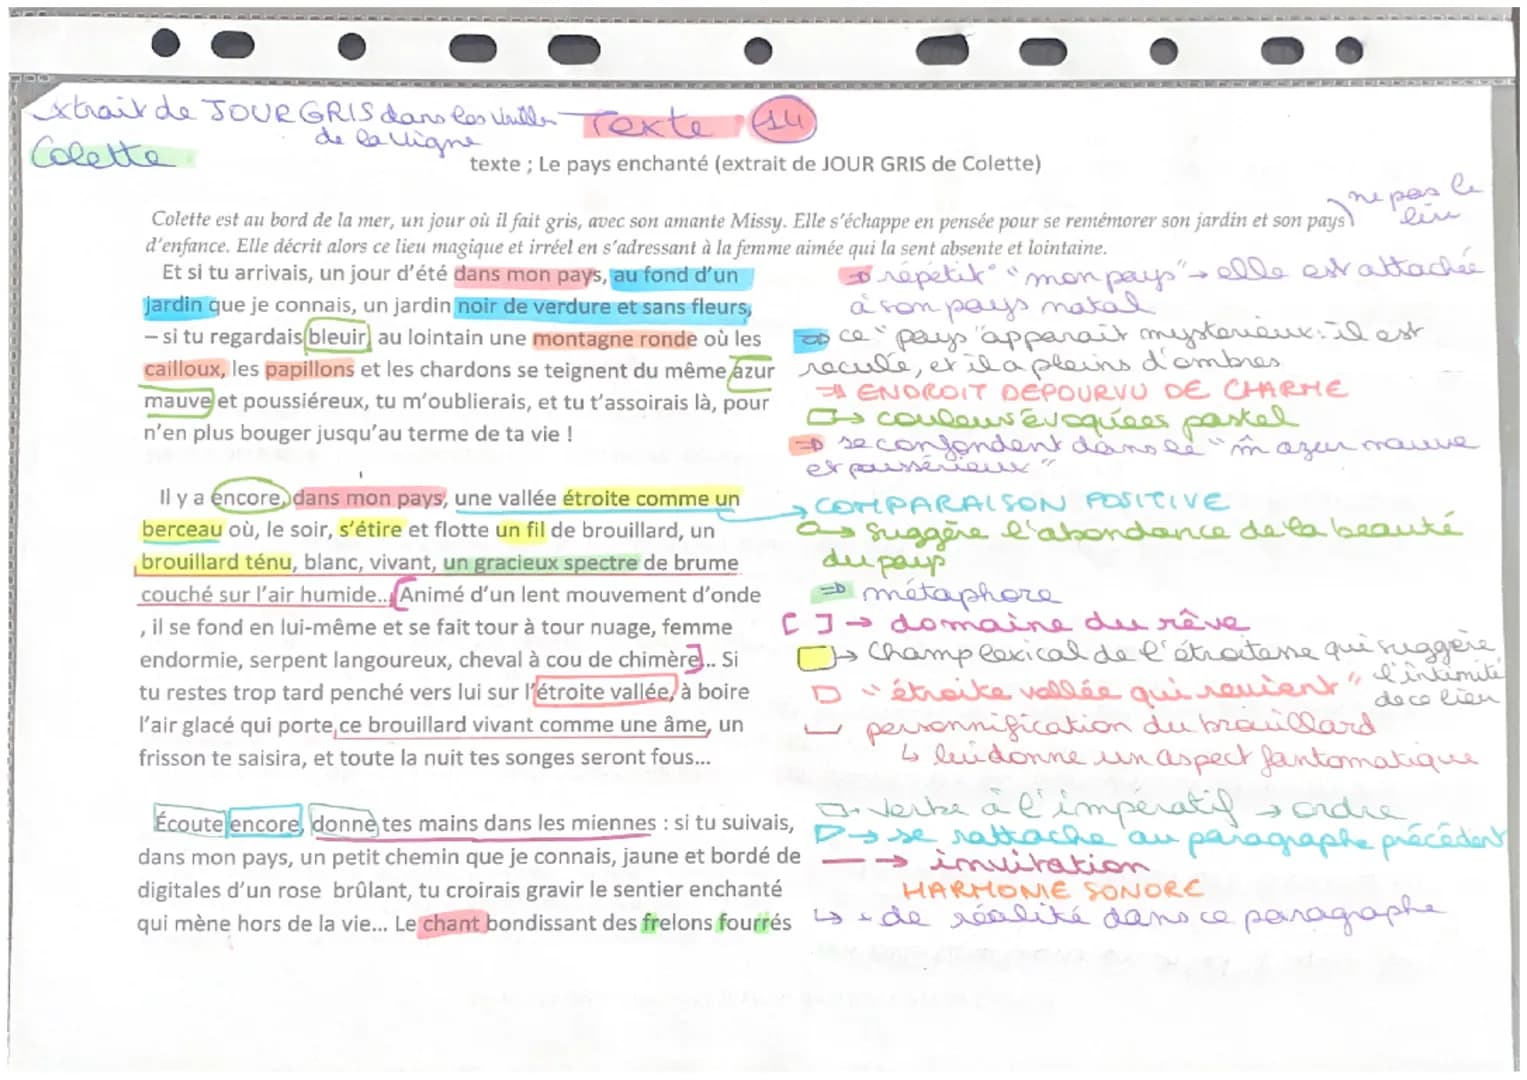 Extrait de JOUR GRIS dans les Vrilles de la Vigne
Texte 14
Colette
texte ; Le pays enchanté (extrait de JOUR GRIS de Colette)
ne pas le lire
Colette est au bord de la mer, un jour où il fait gris, avec son amante Missy. Elle s'échappe en pensée pour se remémorer son jardin et son pays
d'enfance. Elle décrit alors ce lieu magique et irréel en s'adressant à la femme aimée qui la sent absente et lointaine.
Et si tu arrivais, un jour d'été dans mon pays, au fond d'un
jardin que je connais, un jardin noir de verdure et sans fleurs,
– si tu regardais bleuir, au lointain une montagne ronde où les
cailloux, les papillons et les chardons se teignent du même azur
mauve et poussiéreux, tu m'oublierais, et tu t'assoirais là, pour
n'en plus bouger jusqu'au terme de ta vie !
⇒ répétit° "mon pays" → elle est attachée
à son pays natal
⇒ ce "pays" apparait mysterieux : il est
reculé, et il a pleins d'ombres
⇒ ENDROIT DEPOURVU DE CHARME
→ couleurs évoquées pastel
⇒ se confondent dans le "m̂ azur mauve
et poussérieux"
Il y a encore, dans mon pays, une vallée étroite comme un
berceau où, le soir, s'étire et flotte un fil de brouillard, un
brouillard ténu, blanc, vivant, un gracieux spectre de brume
couché sur l'air humide... Animé d'un lent mouvement d'onde
, il se fond en lui-même et se fait tour à tour nuage, femme
endormie, serpent langoureux, cheval à cou de chimère... Si
tu restes trop tard penché vers lui sur l'étroite vallée, à boire
l'air glacé qui porte ce brouillard vivant comme une âme, un
frisson te saisira, et toute la nuit tes songes seront fous...
→ COMPARAISON POSITIVE
→ suggère l'abondance de la beauté
du pays
⇒ métaphore
[ ] → domaine du rêve
→ Champ lexical de l'étroitesse qui suggère
l'intimité
de ce lieu
"étroite vallée qui revient"
personnification du brouillard
↳ lui donne un aspect fantomatique
Écoute encore, donne tes mains dans les miennes : si tu suivais,
dans mon pays, un petit chemin que je connais, jaune et bordé de
digitales d'un rose brûlant, tu croirais gravir le sentier enchanté
qui mène hors de la vie... Le chant bondissant des frelons fourrés
→ Verbe à l'impératif → ordre
→ se rattache au paragraphe précédent
— → invitation
HARMONIE SONORE
↳ + de réalité dans ce paragraphe